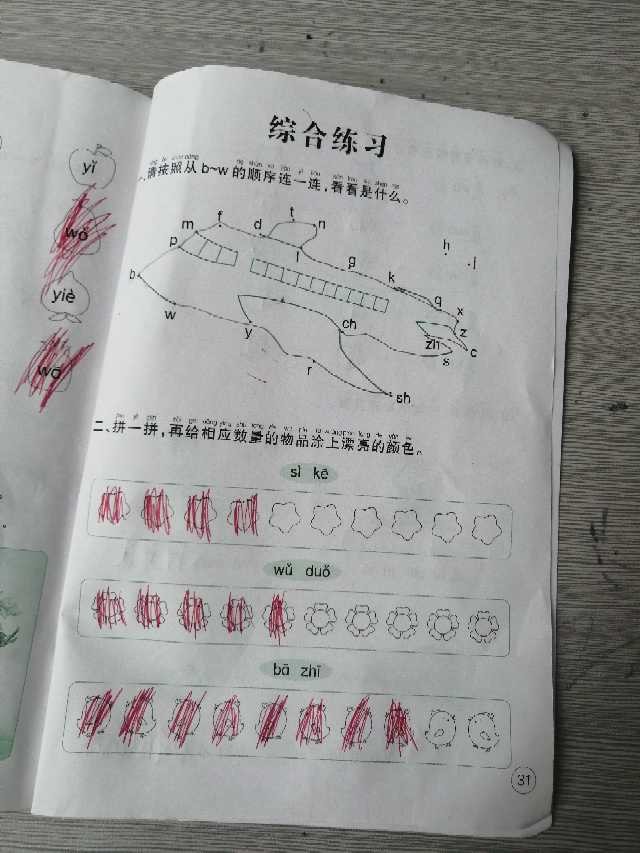 yǐ
wǒ
yiè
wā
综合练习
一、请按照从b~w的顺序连一连,看看是什么。
t n
f d l
m
p
h j
g
k q x
b
w y ch z
zh s c
r
sh
二、拼一拼,再给相应数量的物品涂上漂亮的颜色。
sì kē
wǔ duǒ
bā zhī
31